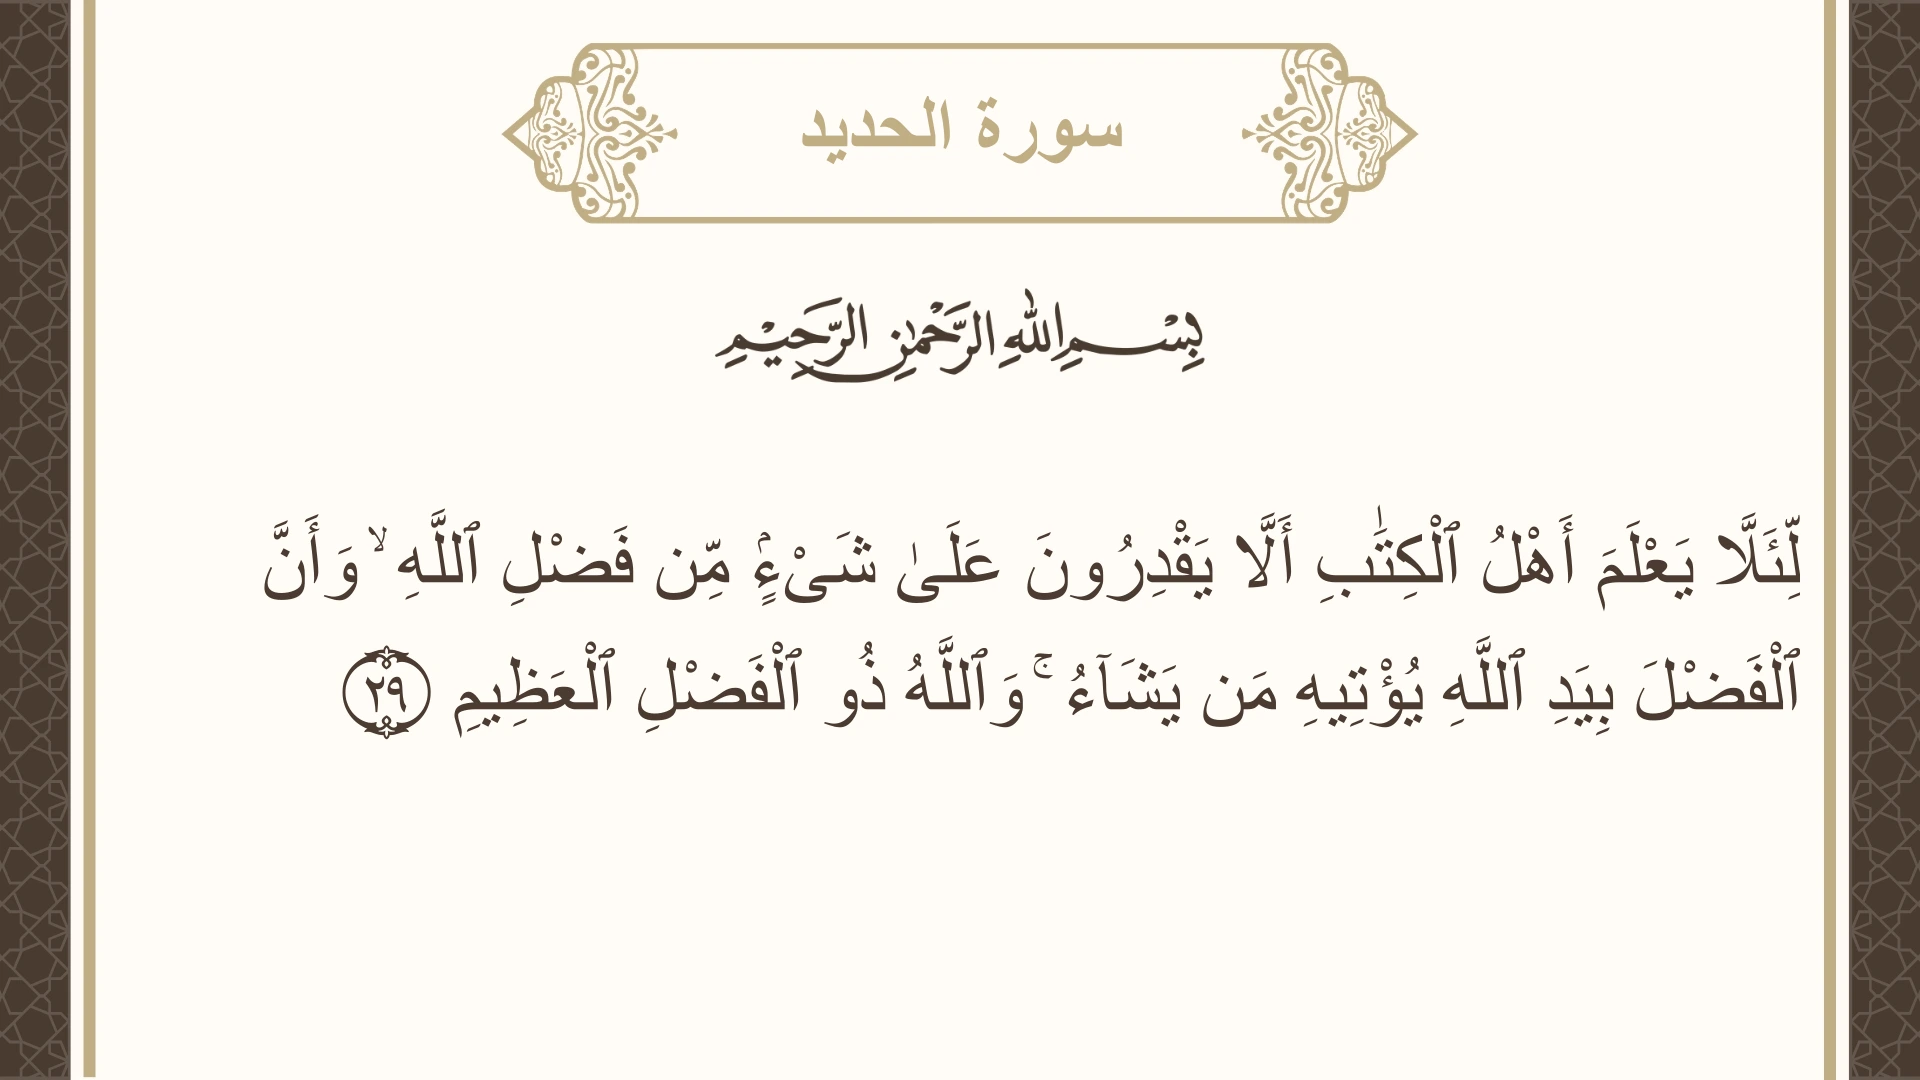 سورة الحديد
بِسْمِ اللهِ الرَّحْمٰنِ الرَّحِيْمِ
لِّئَلَّا يَعْلَمَ أَهْلُ ٱلْكِتَٰبِ أَلَّا يَقْدِرُونَ عَلَىٰ شَىْءٍۢ مِّن فَضْلِ ٱللَّهِ ۙ وَأَنَّ
ٱلْفَضْلَ بِيَدِ ٱللَّهِ يُؤْتِيهِ مَن يَشَآءُ ۚ وَٱللَّهُ ذُو ٱلْفَضْلِ ٱلْعَظِيمِ ٢٩